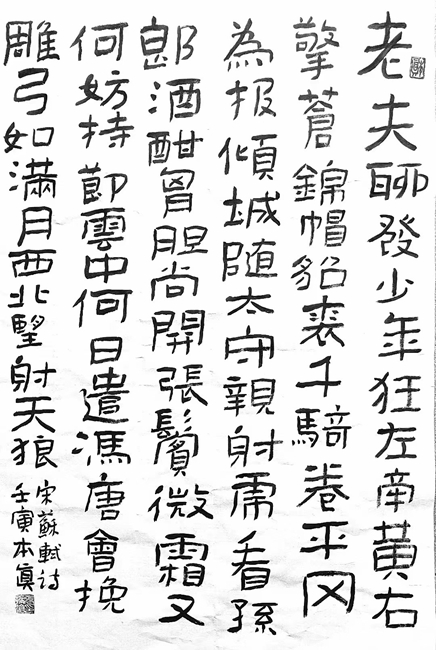 老夫聊發少年狂左牽黃右
擎蒼錦帽貂裘千騎卷平冈
為报傾城随太守親射虎看孫
郎酒酣胷胆尚開張鬢微霜又
何妨持節雲中何日遣馮唐會挽
雕弓如滿月西北望射天狼
宋蘇軾詩
壬寅本真